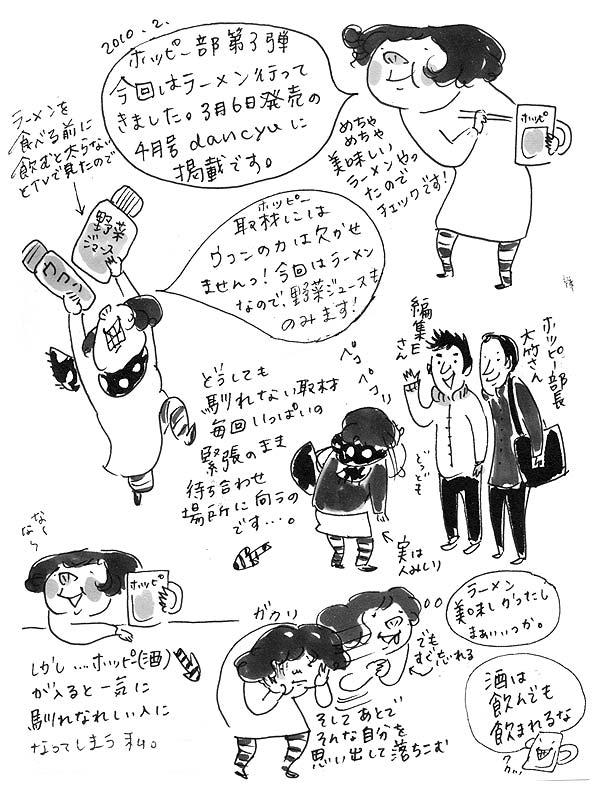 2010.2.
ホッピー部第3弾
今回はラーメン行って
きました。3月6日発売の
4月号 dancyuに
掲載です。
ホッピ
めちゃ
めちゃ
美味しい
ラーメンやっ
たので
チェックです!
ラーメンを
食べる前に
飲むと太らない
とTVで見たので
野菜
ジュース
ウコン
ホッピー
取材には
ウコンの力は欠かせ
ませんっ!今回はラーメン
なので、野菜ジュースも
のみます!
編集Eさん
ホッピー部長
大竹さん
どうしても
馴れない取材
毎回いっぱいの
緊張のまま
待ち合わせ
場所に向うの
です…。
ペコ
ペコリ
どうども
実は
人みしり
ホッピ
しかし…ホッピー(酒)
が入ると一気に
馴れなれしい人に
なってしまう私。
ガクリ
そしてあとで
そんな自分を
思い出して落ちこむ
でも
すぐ忘れる
ラーメン
美味しかったし
まぁいっか。
酒は
飲んでも
飲まれるな